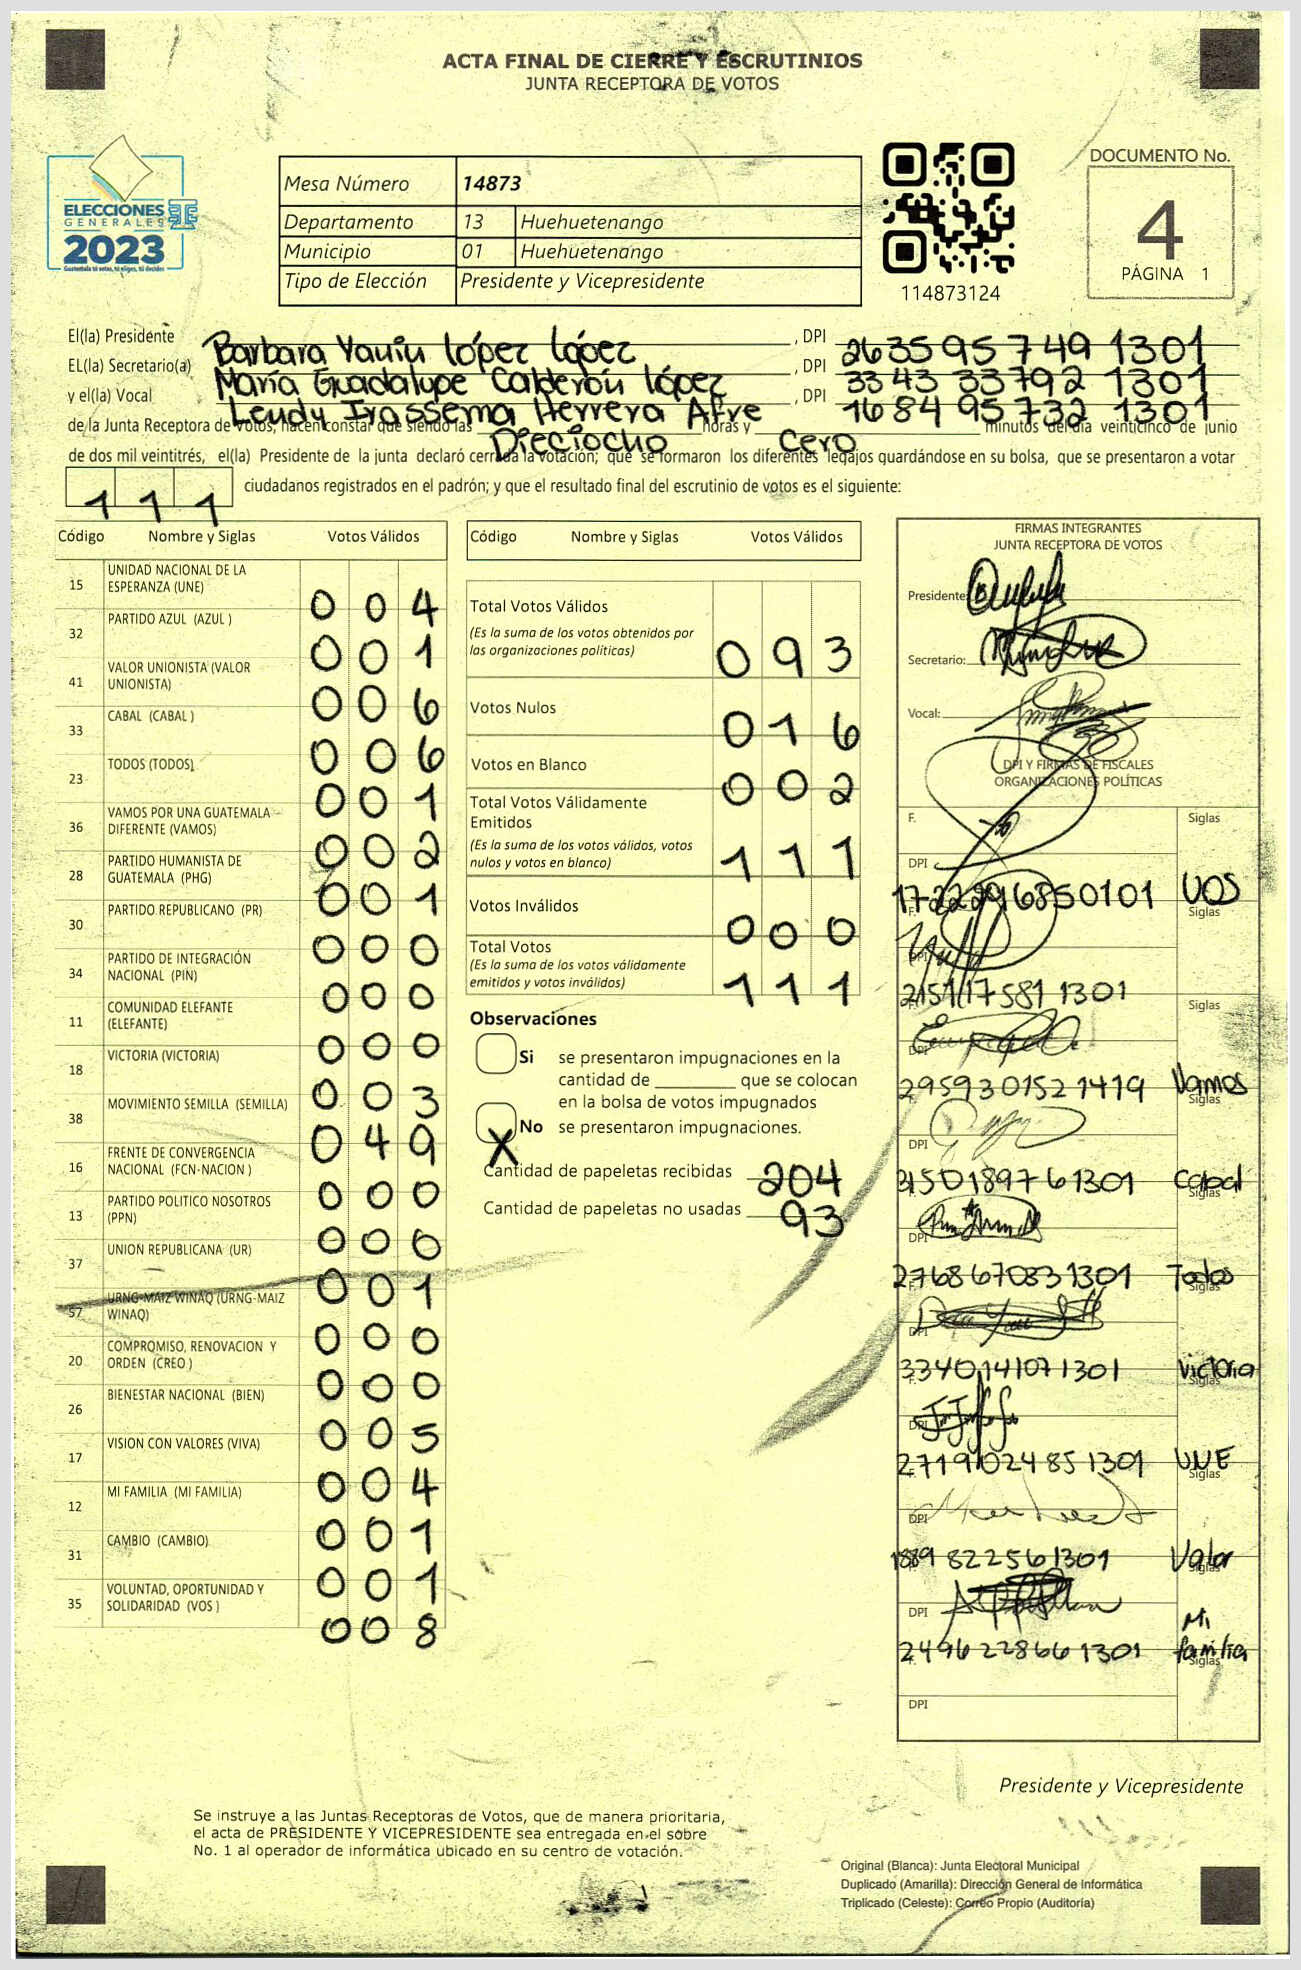 ACTA FINAL DE CIERRE Y ESCRUTINIOS
JUNTA RECEPTORA DE VOTOS
ELECCIONES
GENERALES
2023
Guatemala tú votas, tú eliges, tú decides
Mesa Número 14873
Departamento 13 Huehuetenango
Municipio 01 Huehuetenango
Tipo de Elección Presidente y Vicepresidente
114873124
DOCUMENTO No.
4
PÁGINA 1
El(la) Presidente Barbara López López, DPI 2635 95 749 1301
EL(la) Secretario(a) María Guadalupe Calderón López, DPI 3343 33792 1301
y el(la) Vocal Lendy Irassema Herrera Afre, DPI 1684 95732 1301
de la Junta Receptora de Votos, hacen constar que siendo las Dieciocho horas y Cero minutos del día veinticinco de junio
de dos mil veintitrés, el(la) Presidente de la junta declaró cerrada la votación; que se formaron los diferentes legajos guardándose en su bolsa, que se presentaron a votar
1 1 1 ciudadanos registrados en el padrón; y que el resultado final del escrutinio de votos es el siguiente:
Código Nombre y Siglas Votos Válidos
15 UNIDAD NACIONAL DE LA ESPERANZA (UNE) 0 0 4
32 PARTIDO AZUL (AZUL ) 0 0 1
41 VALOR UNIONISTA (VALOR UNIONISTA) 0 0 6
33 CABAL (CABAL ) 0 0 6
23 TODOS (TODOS) 0 0 1
36 VAMOS POR UNA GUATEMALA DIFERENTE (VAMOS) 0 0 2
28 PARTIDO HUMANISTA DE GUATEMALA (PHG) 0 0 1
30 PARTIDO REPUBLICANO (PR) 0 0 0
34 PARTIDO DE INTEGRACIÓN NACIONAL (PIN) 0 0 0
11 COMUNIDAD ELEFANTE (ELEFANTE) 0 0 0
18 VICTORIA (VICTORIA) 0 0 3
38 MOVIMIENTO SEMILLA (SEMILLA) 0 4 9
16 FRENTE DE CONVERGENCIA NACIONAL (FCN-NACION ) 0 0 0
13 PARTIDO POLITICO NOSOTROS (PPN) 0 0 0
37 UNION REPUBLICANA (UR) 0 0 1
57 URNG-MAIZ WINAQ (URNG-MAIZ WINAQ) 0 0 0
20 COMPROMISO, RENOVACION Y ORDEN (CREO ) 0 0 0
26 BIENESTAR NACIONAL (BIEN) 0 0 5
17 VISION CON VALORES (VIVA) 0 0 4
12 MI FAMILIA (MI FAMILIA) 0 0 1
31 CAMBIO (CAMBIO) 0 0 1
35 VOLUNTAD, OPORTUNIDAD Y SOLIDARIDAD (VOS ) 0 0 8
Código Nombre y Siglas Votos Válidos
Total Votos Válidos 0 9 3
(Es la suma de los votos obtenidos por
las organizaciones políticas)
Votos Nulos 0 1 6
Votos en Blanco 0 0 2
Total Votos Válidamente
Emitidos 1 1 1
(Es la suma de los votos válidos, votos
nulos y votos en blanco)
Votos Inválidos 0 0 0
Total Votos 1 1 1
(Es la suma de los votos válidamente
emitidos y votos inválidos)
Observaciones
Si se presentaron impugnaciones en la
cantidad de ________ que se colocan
en la bolsa de votos impugnados
X No se presentaron impugnaciones.
Cantidad de papeletas recibidas 204
Cantidad de papeletas no usadas 93
FIRMAS INTEGRANTES
JUNTA RECEPTORA DE VOTOS
Presidente:
Secretario:
Vocal:
DPI Y FIRMAS DE FISCALES
ORGANIZACIONES POLÍTICAS
F. Siglas
DPI
VOS
F. Siglas
DPI
2151117581 1301
Siglas
DPI
295930152 1419 Vamos
Siglas
DPI
31501897 6 1301 Cabal
Siglas
DPI
2768 67083 1301 Todos
F. Siglas
DPI
3340 14107 1301 Victoria
F. Siglas
DPI
2719 02485 1301 UNE
Siglas
DPI
1889 82256 1301 Valor
F. Siglas
DPI
2496 22866 1301 Mi familia
F. Siglas
DPI
Presidente y Vicepresidente
Se instruye a las Juntas Receptoras de Votos, que de manera prioritaria,
el acta de PRESIDENTE Y VICEPRESIDENTE sea entregada en el sobre
No. 1 al operador de informática ubicado en su centro de votación.
Original (Blanca): Junta Electoral Municipal
Duplicado (Amarilla): Dirección General de Informática
Triplicado (Celeste): Correo Propio (Auditoría)